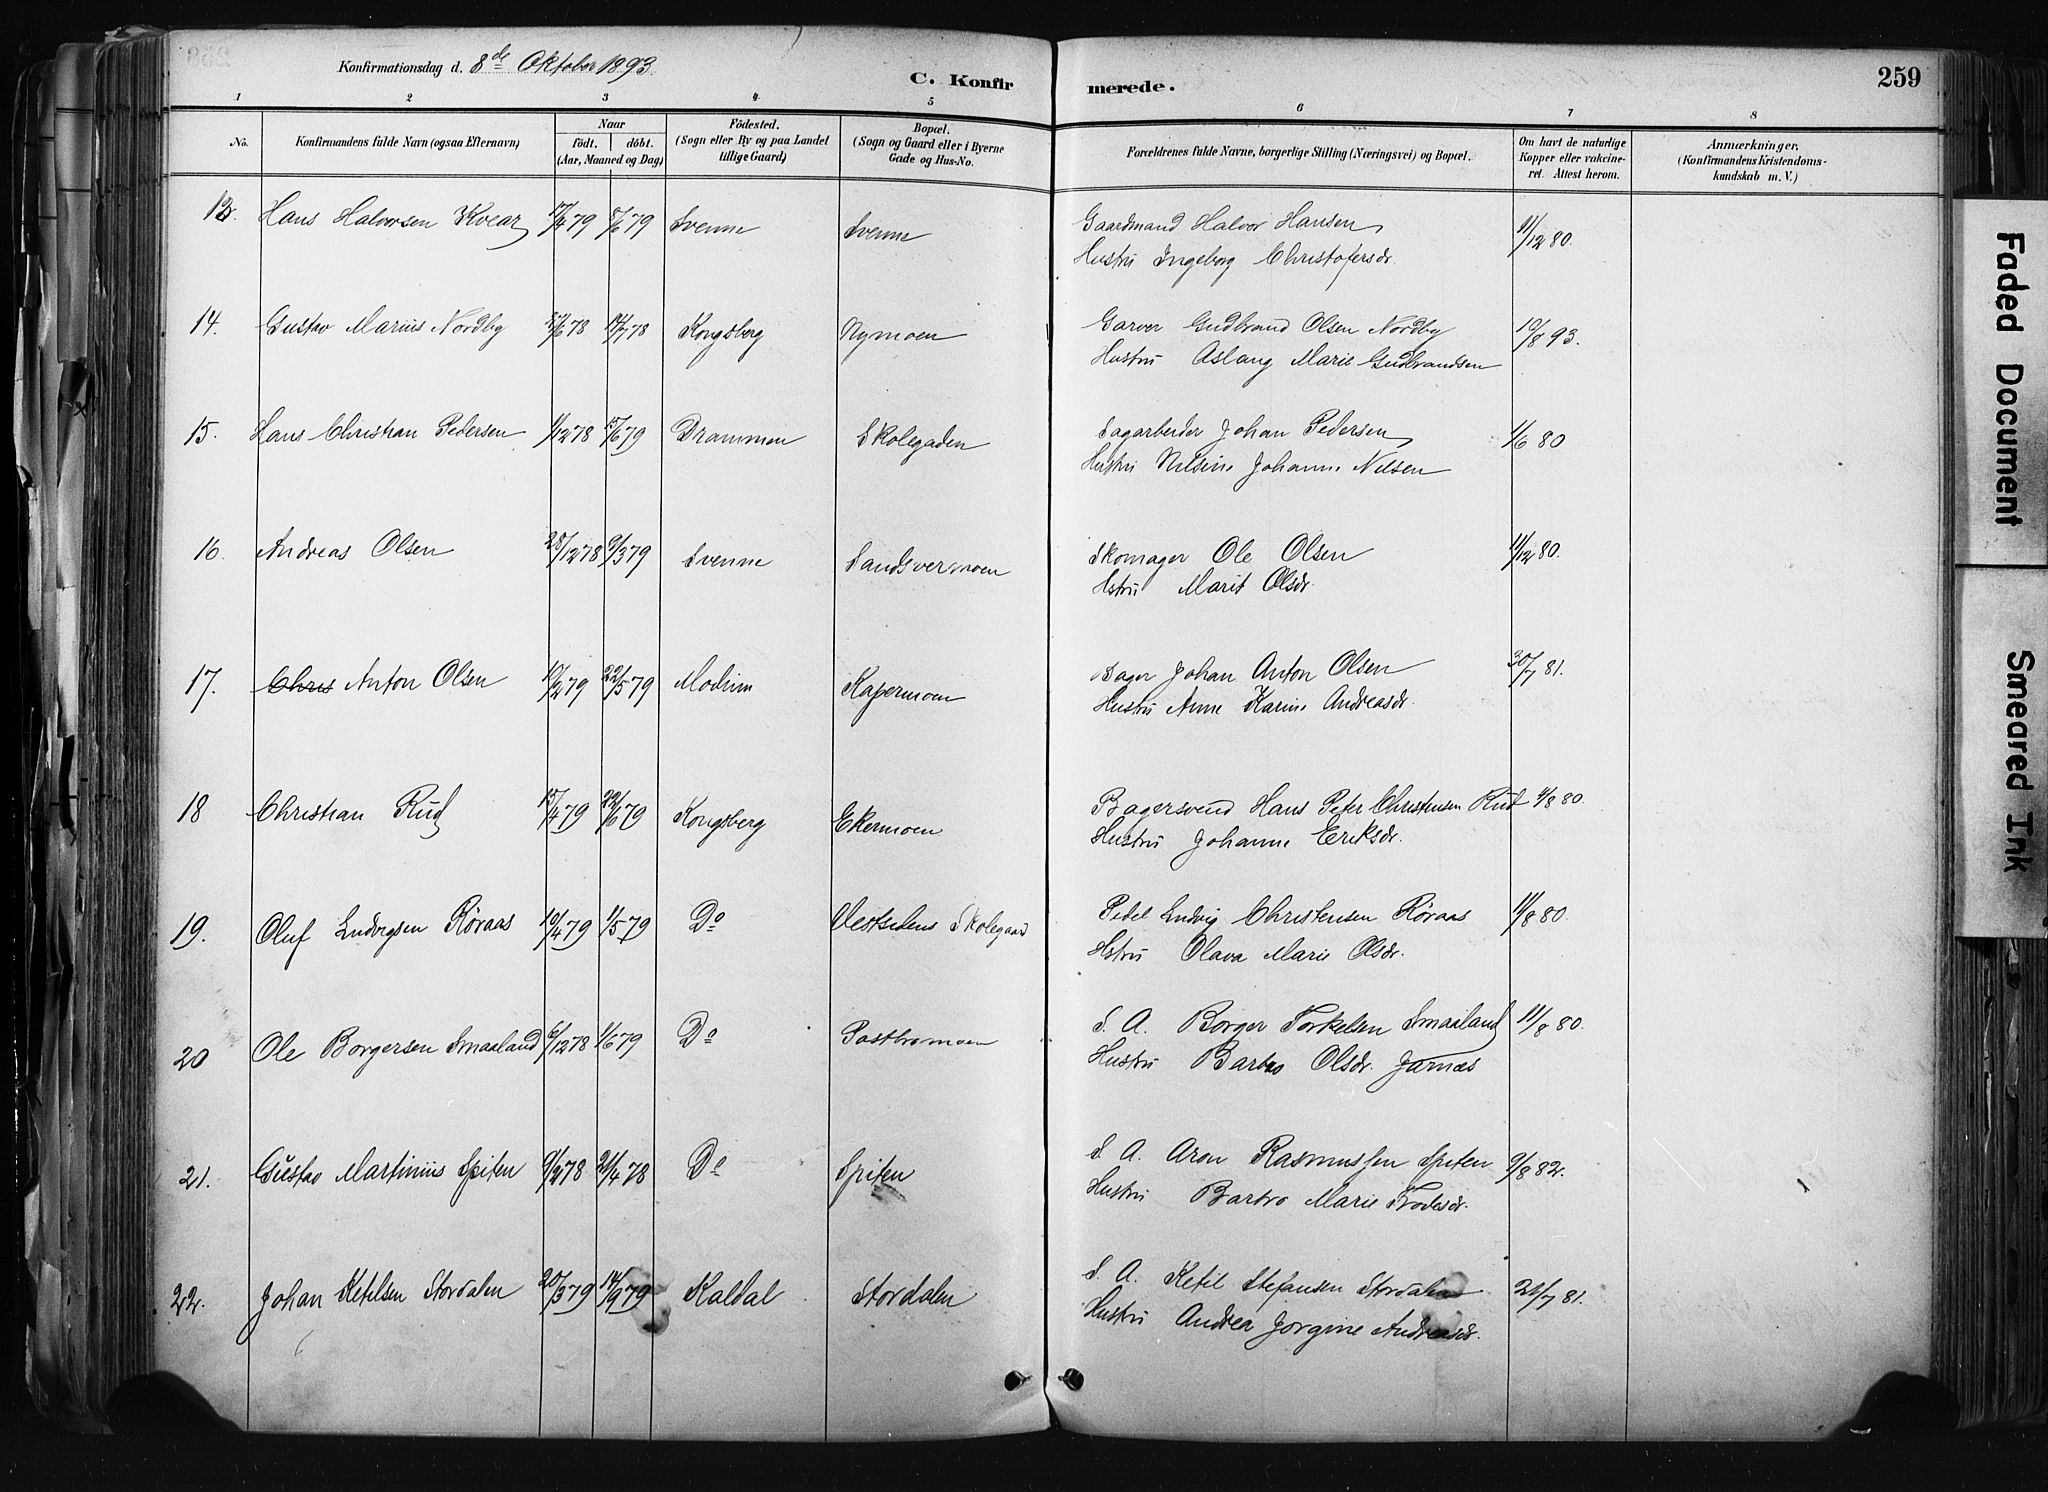 Konfirmationsdag d. 8de Oktober 1893.
C. Konfirmerede.
259
1 2 3 4 5 6 7 8
No.
Konfirmandens fulde Navn (ogsaa Efternavn)
Naar
födt. döbt.
(Aar, Maaned og Dag)
Födested.
(Sogn eller By og paa Landet
tillige Gaard)
Bopæl.
(Sogn og Gaard eller i Byerne
Gade og Hus-No.
Forældrenes fulde Navne, borgerlige Stilling (Næringsvei) og Bopæl.
Om havt de naturlige
Kopper eller vakcine-
ret. Attest herom.
Anmærkninger.
(Konfirmandens Kristendoms-
kundskab m. V.)
13. Hans Halvorsen Kvear 17/4 79 8/6 79 Svenne Svenne Gaardmand Halvor Hansen 11/12 80.
Hustru Ingeborg Christofersdr.
14. Gustav Marius Nordby /6 78 14/7 78 Kongsberg Nymoen Garver Gudbrand Olsen Nordby 10/8 93.
Hustru Aslaug Marie Gudbrandsen
15. Hans Christian Pedersen 1/12 78 15/6 79 Drammen Skolegaden Sagarbeider Johan Pedersen 1/6 80
Hustru Nilsine Johanne Nilsen
16. Andreas Olsen 28/12 78 9/3 79 Svenne Sandsvermoen Skomager Ole Olsen 11/12 80.
Hstru Marit Olsdr.
17. Chris Anton Olsen 10/2 79 22/5 79 Modum Kapermoen Bager Johan Anton Olsen 30/7 81.
Hustru Anne Karine Andreasdr.
18 Christian Rud 15/4 79 22/6 79 Kongsberg Ekermoen Bagersvend Hans Peter Christensen Rud 4/8 80.
Hustru Johanne Eriksdr.
19. Oluf Ludvigsen Röraas 10/4 79 1/5 79 Do Vestsidens Skolegaard Pedel Ludvig Christensen Röraas 11/8 80.
Hstru Olava Marie Olsdr.
20 Ole Borgersen Smaaland 6/12 78 1/6 79 Do Pastbromoen S. A. Borger Torkelsen Smaaland 11/8 80.
Hustru Barbro Olsdr. Jarnæs
21. Gustav Martinius Spiten 9/2 78 21/4 78 Do Spiten S. A. Aron Rasmussen Spiten 9/8 82.
Hustru Barbro Marie Frodesdr.
22. Johan Ketilsen Stordalen 20/3 79 14/9 79 Kaldal Stordalen S. A. Ketil Stefansen Stordalen 21/7 81.
Hustru Andrea Jorgine Andreasdr.
Faded Document
Smeared Ink